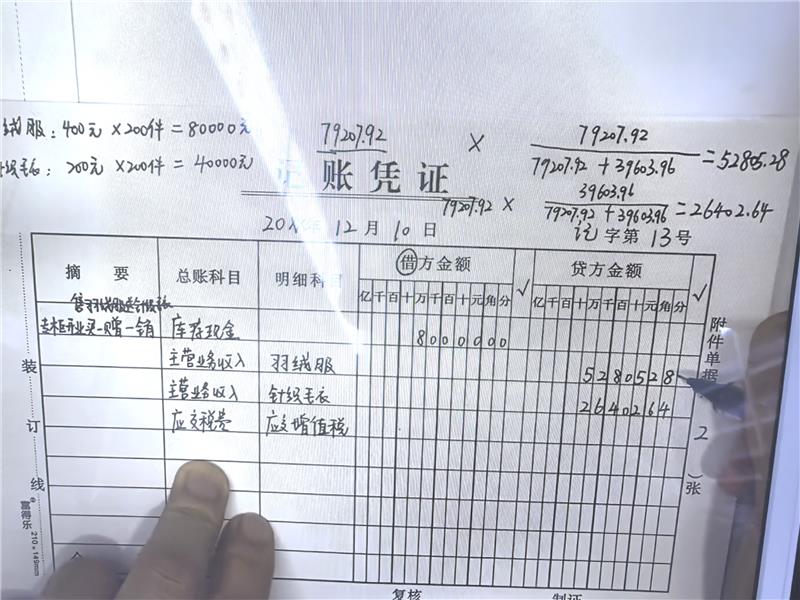 绒服：400元 ×200件 = 80000元
织毛衣：200元 ×200件 = 40000元
79207.92 × 79207.92 / 79207.92 + 39603.96 = 52805.28
79207.92 × 39603.96 / 79207.92 + 39603.96 = 26402.64
记账凭证
12月10日
记字第13号
摘要 总账科目 明细科目 借方金额 √ 贷方金额 √
亿千百十万千百十元角分 亿千百十万千百十元角分
专柜开业买一赠一销 库存现金 8000000
主营业务收入 羽绒服 5280528
主营业务收入 针织毛衣 2640264
应交税费 应交增值税
附件单据 2 张
装订线
富得乐® 210×149mm
复核 制证